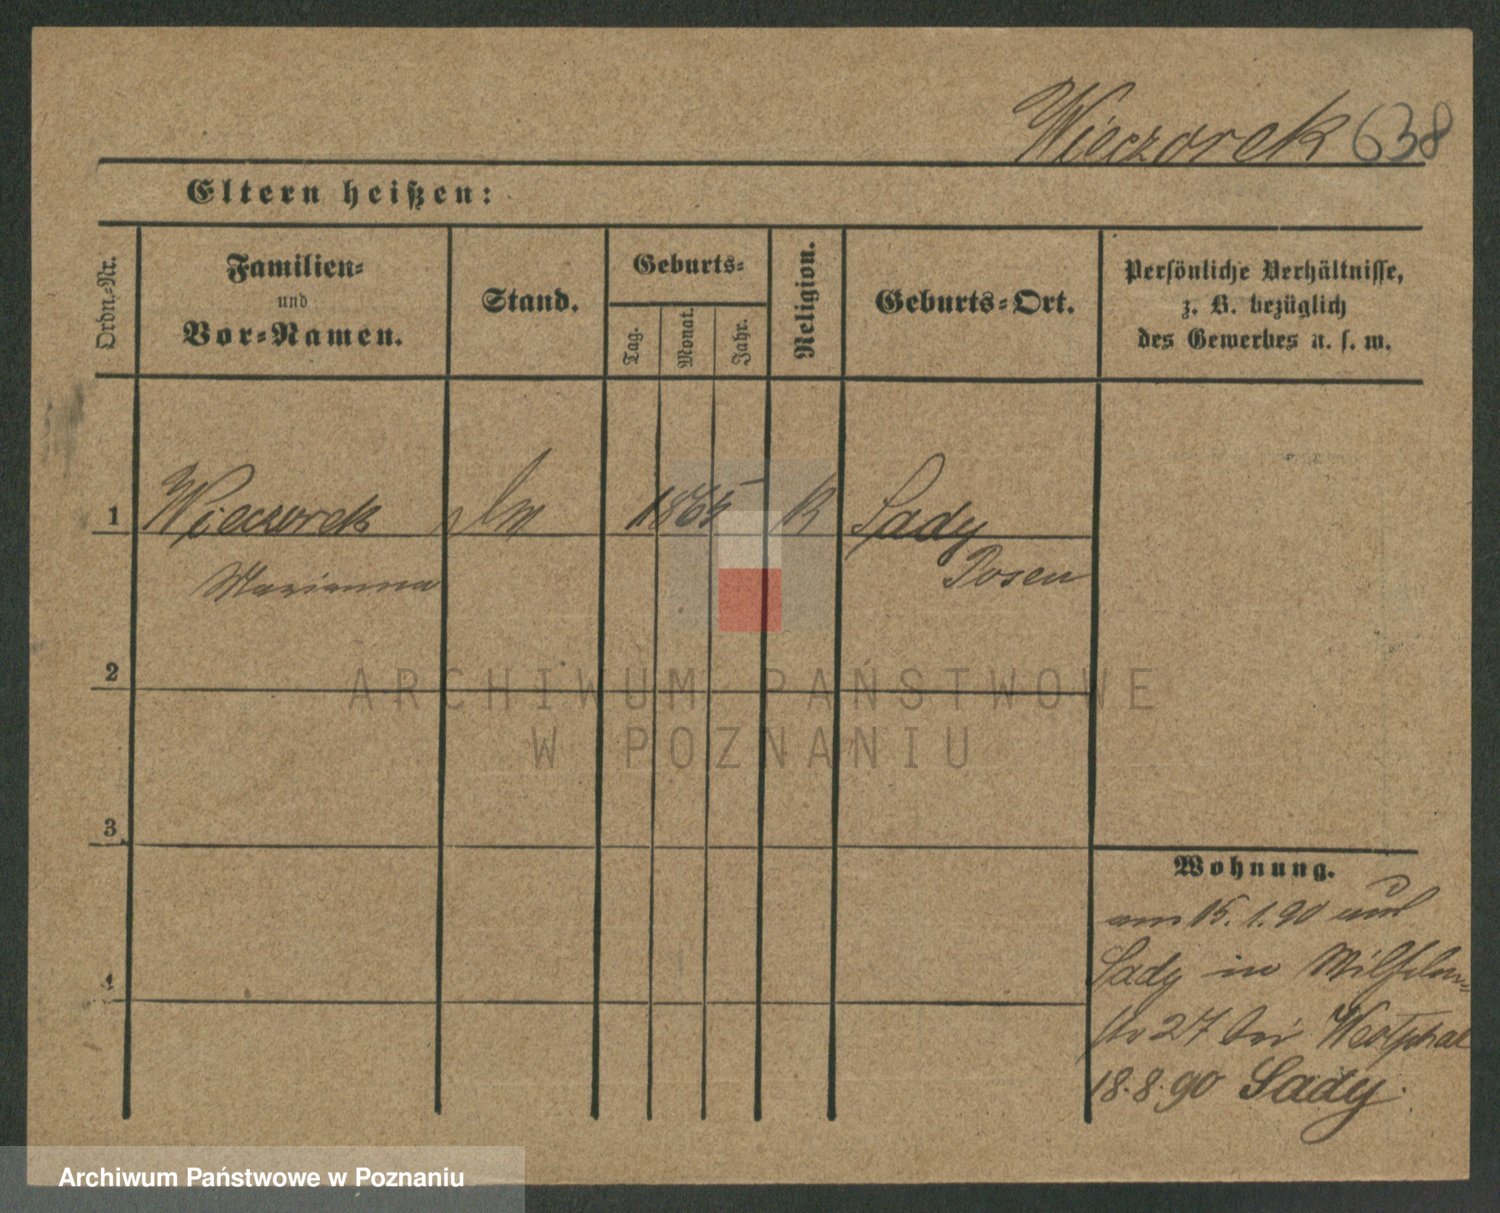 Wieczorek 638
Eltern heißen:
Ordn.-Nr.
Familien-
und
Vor-Namen.
Stand.
Geburts-
Tag.
Monat.
Jahr.
Religion.
Geburts-Ort.
Persönliche Verhältnisse,
z. B. bezüglich
des Gewerbes u. s. w.
1 Wieczorek 1865 K Sady
Marianna Posen
2
3
4
Wohnung.
am 15.1.90 aus
Sady in
str 27 bei Westphal
18.8.90 Sady.
ARCHIWUM PAŃSTWOWE
W POZNANIU
Archiwum Państwowe w Poznaniu